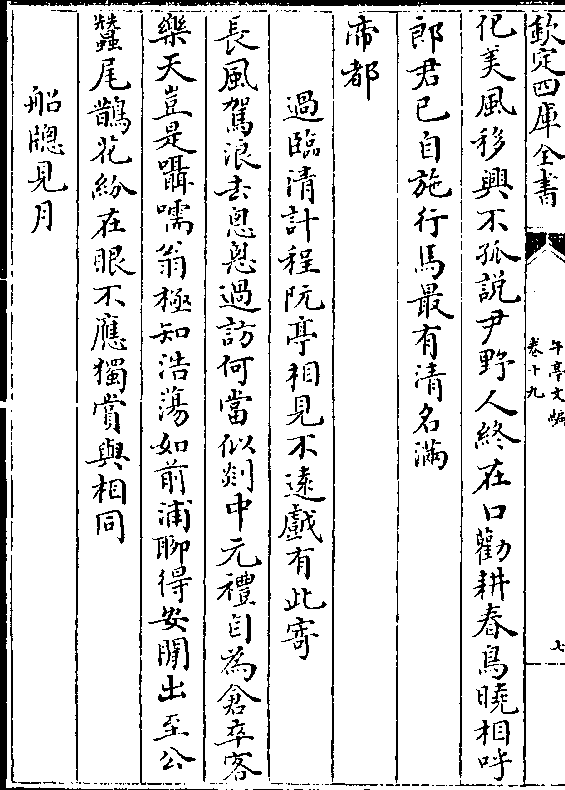 欽定四庫全書
午亭文編
卷十九
七
化美風移興不孤說尹野人終在口勸耕春鳥曉相呼
郎君已自施行馬最有清名滿
帝都
過臨清計程阮亭相見不遠戲有此寄
長風駕浪去悤悤過訪何當似剡中元禮自為倉卒客
樂天豈是囁嚅翁極知浩蕩如前浦聊得安閒出至公
蠶尾鵲花紛在眼不應獨賞與相同
船牕見月